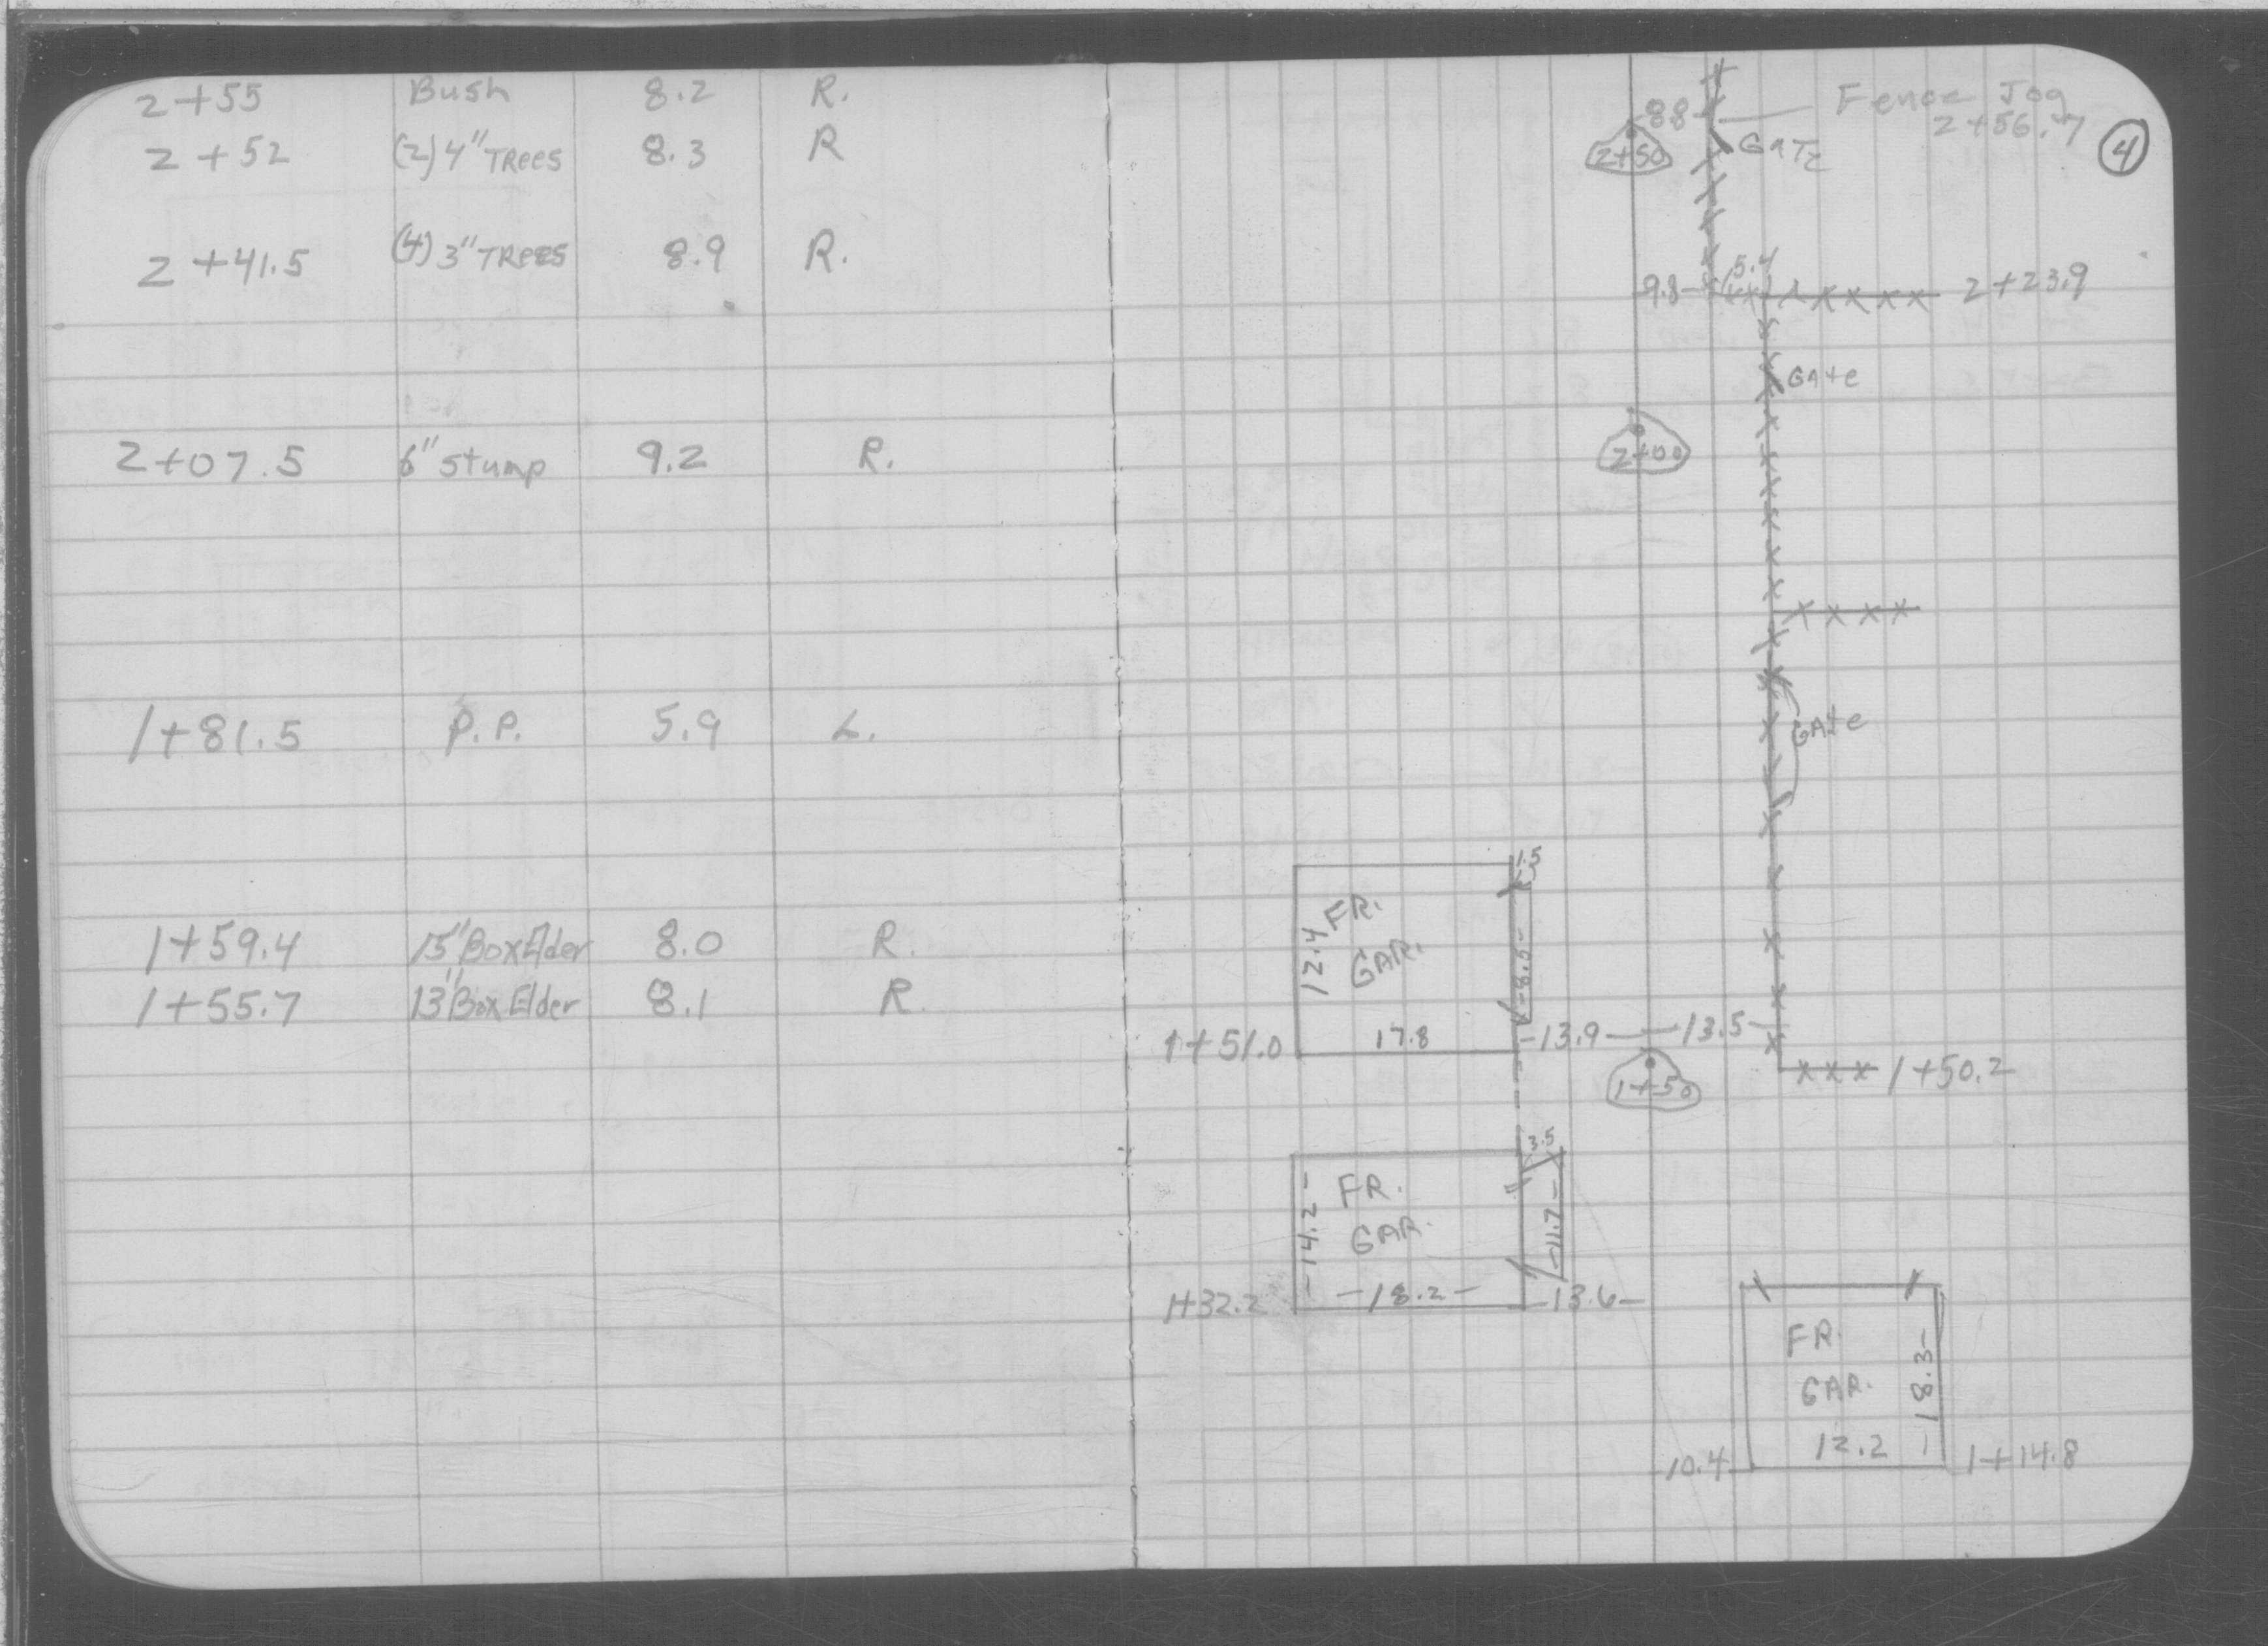 2+55 Bush 8.2 R.
2+52 (2) 4" TRees 8.3 R
2+41.5 (4) 3" TRees 8.9 R.
2+07.5 6" stump 9.2 R.
1+81.5 P.P. 5.9 L.
1+59.4 15" Box Elder 8.0 R.
1+55.7 13" Box Elder 8.1 R.
4
Fence Jog
2+56.7
8.8
2+50
GATE
5.4
9.8
2+23.9
GAte
2+00
GAte
1.5
FR.
GAR.
12.4
8.5
17.8
1+51.0
13.9
13.5
1+50
1+50.2
3.5
FR.
GAR.
14.2
11.7
18.2
1+32.2
13.6
FR.
GAR.
18.3
12.2
10.4
1+14.8